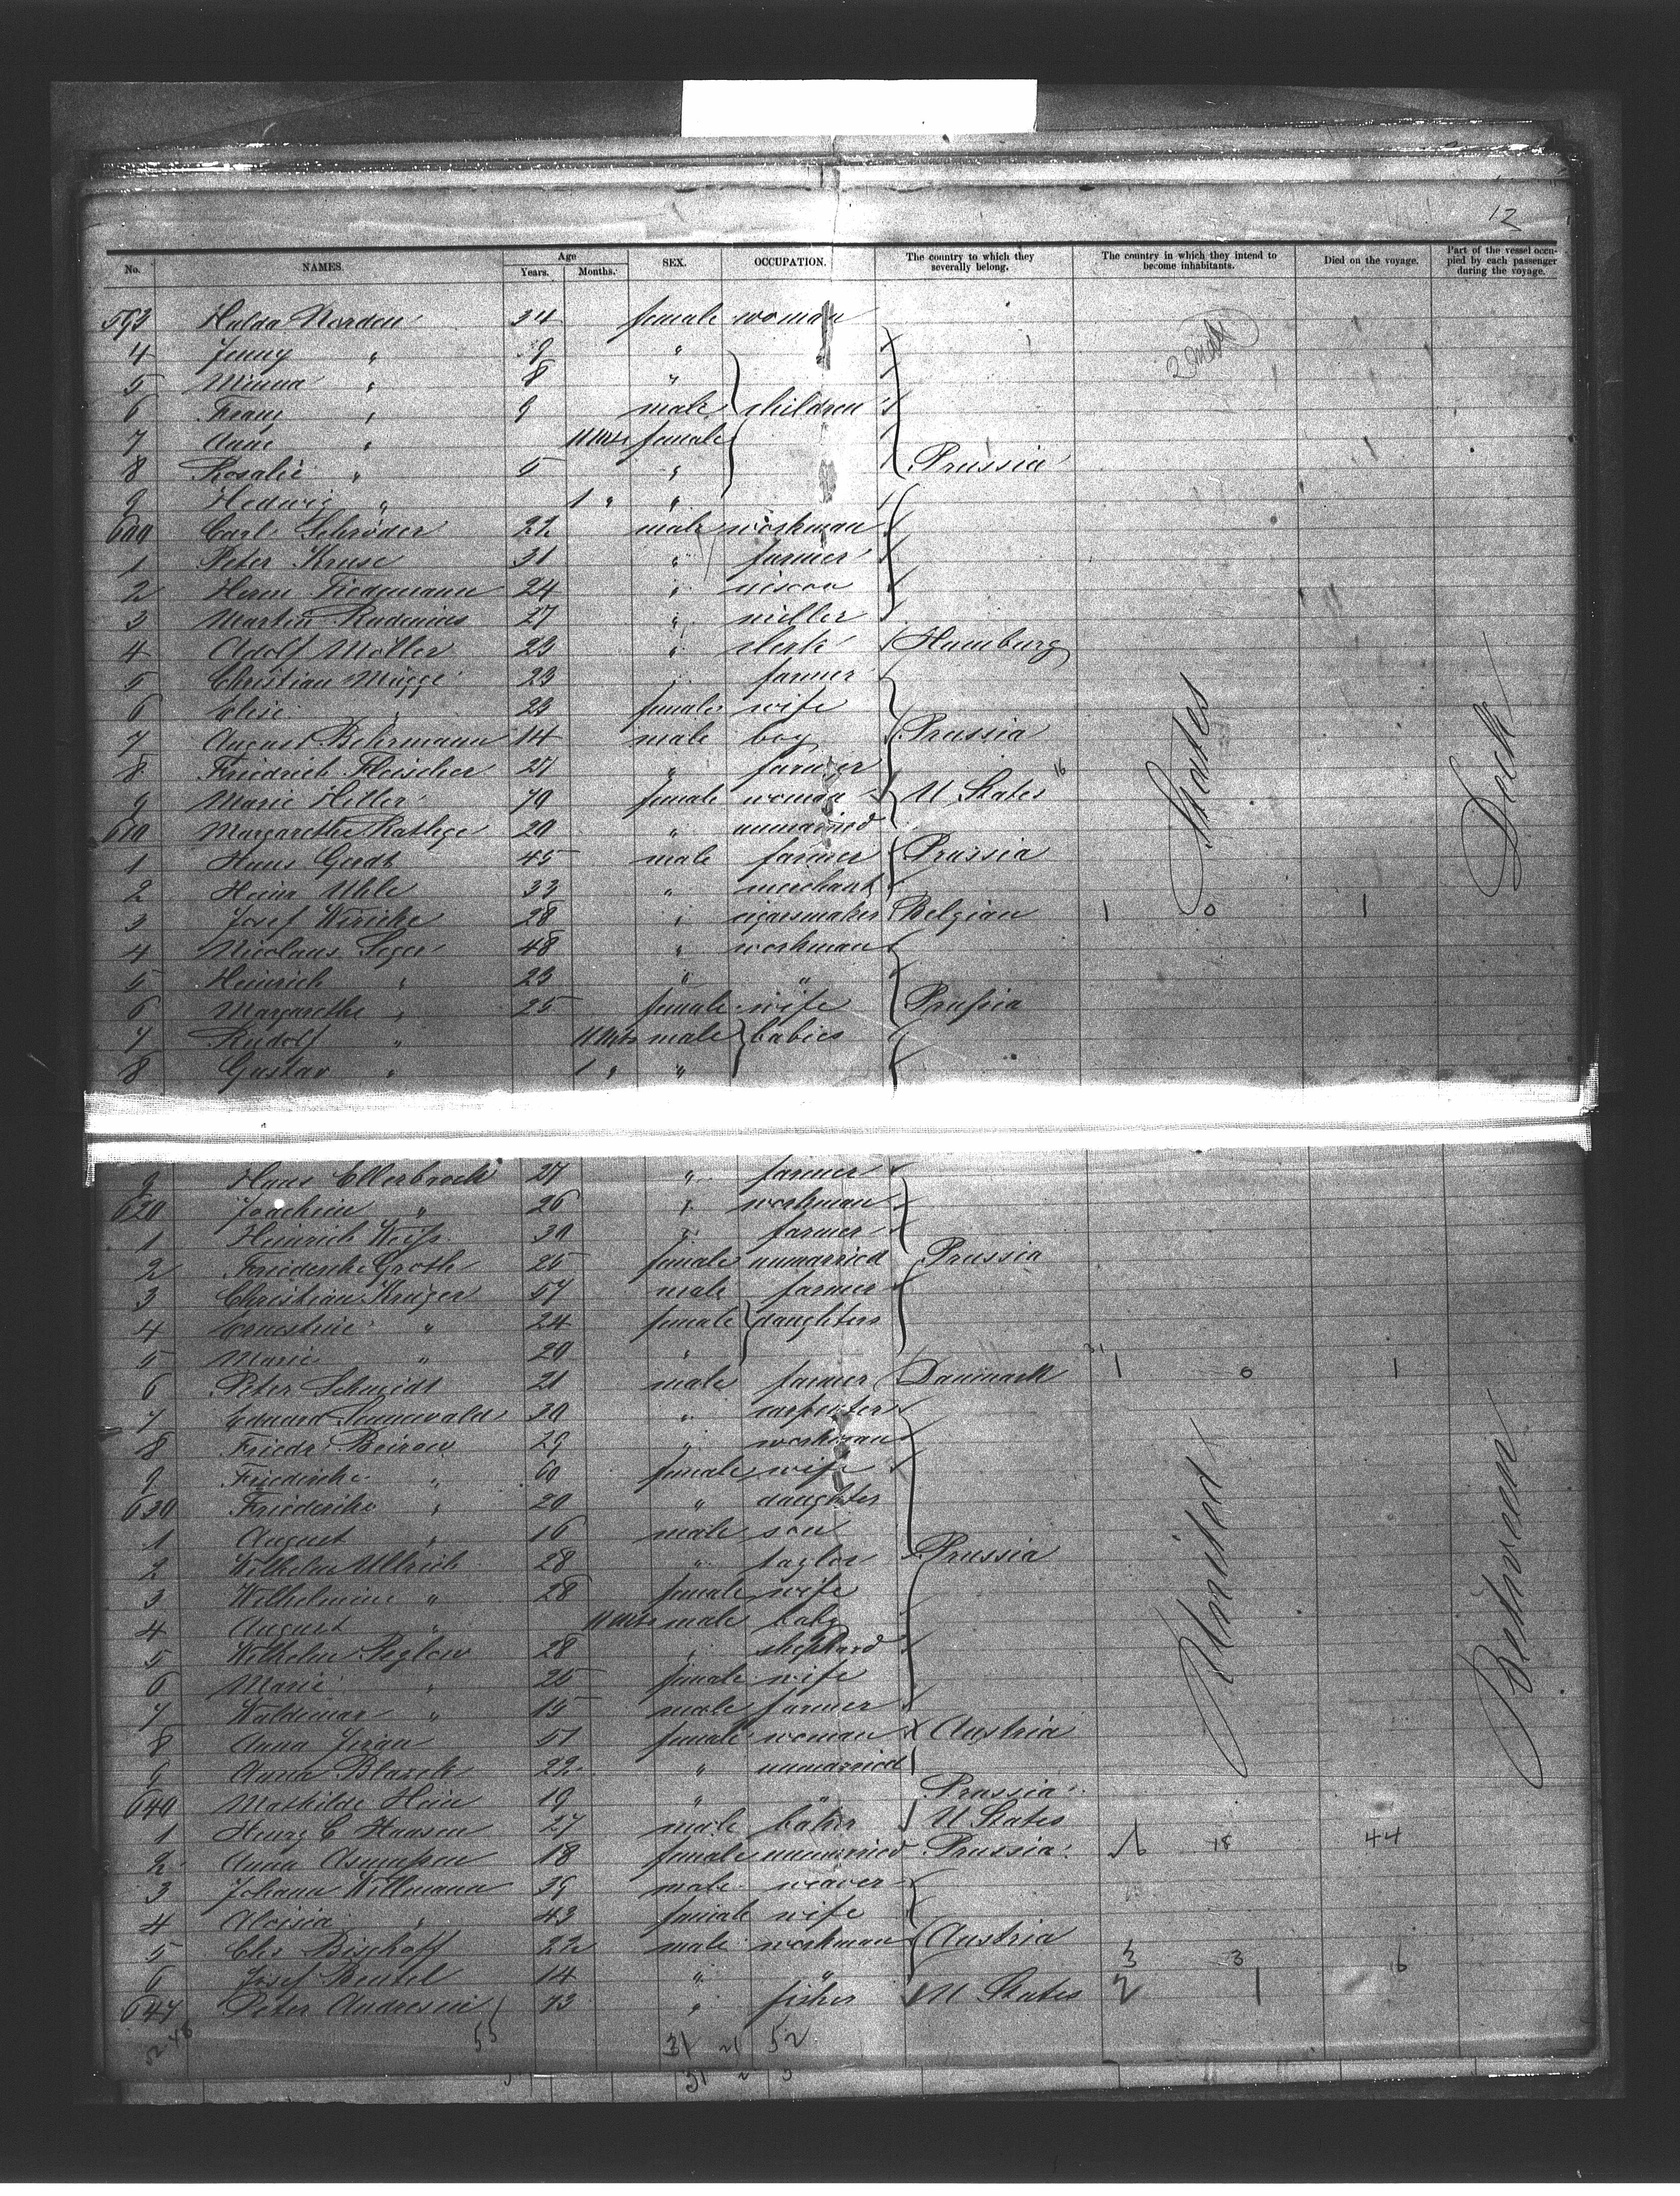 12
No. NAMES. Age Years. Months. SEX. OCCUPATION. The country to which they severally belong. The country in which they intend to become inhabitants. Died on the voyage. Part of the vessel occupied by each passenger during the voyage.
593 Hulda Norden 34 female woman
4 Jenny " 9 "
5 Minna " 8 "
6 Franz " 9 male children
7 Anne " 11 Mts female
8 Rosalie " 5 " Prussia
9 Hedwig " 1 " "
600 Carl Schröder 22 male workman
1 Peter Kruse 31 " farmer
2 Herm Tiedemann 24 "
3 Martin 27 " miller
4 Adolf Möller 23 " clerk Hamburg
5 Christian Mügge 23 " farmer
6 Elise " 23 female wife
7 August Behrmann 14 male boy Prussia
8 Friedrich Fleischer 27 " farmer
9 Marie Hiller 70 female woman U States 16
610 Margarethe 20 " unmarried
1 Hans Goedt 45 male farmer Prussia
2 Heinr Uhle 33 " merchant
3 Josef 28 " cigarsmaker Belgian 1 0 1
4 Nicolaus Seger 48 " workman
5 Heinrich " 23 " "
6 Margarethe " 25 female wife Prussia
7 Rudolf " 11 Mts male babies
8 Gustav " 1 " "
States
Deck
9 Hans Ellerbrock 27 " farmer
620 Joachim " 26 " workman
1 Heinrich Weiss 30 " farmer
2 Friederike Groth 25 female unmarried Prussia
3 Christian Krüger 57 male farmer
4 Ernestine " 24 female daughters
5 Marie " 20 "
6 Peter Schmidt 21 male farmer Danmark 1 0 1
7 Eduard Sennewald 30 " carpenter
8 Friedr Beirow 29 " workman
9 Friederike " 60 female wife
630 Friederike " 20 " daughter
1 August " 16 male son
2 Wilhelm Ullrich 28 " taylor Prussia
3 Wilhelmine " 28 female wife
4 August " 11 Mts male baby
5 Wilhelm Peglow 28 " shephard
6 Marie " 25 female wife
7 Waldemar " 15 male farmer
8 Anna Jiran 51 female woman Austria
9 Anna Blaschk 22 " unmarried
640 Mathilde Hein 19 " " Prussia
1 Henry C Hansen 27 male baker U States
2 Anna Asmussen 18 female unmarried Prussia 18 44
3 Johann Willmann 39 male weaver
4 Aloisia " 43 female wife
5 Chs Bischoff 22 male workman Austria 3 3 6
6 Josef Beutel 14 " "
647 Peter Andresen 73 " fisher U States 2 1
United
Between
55 31 21 52